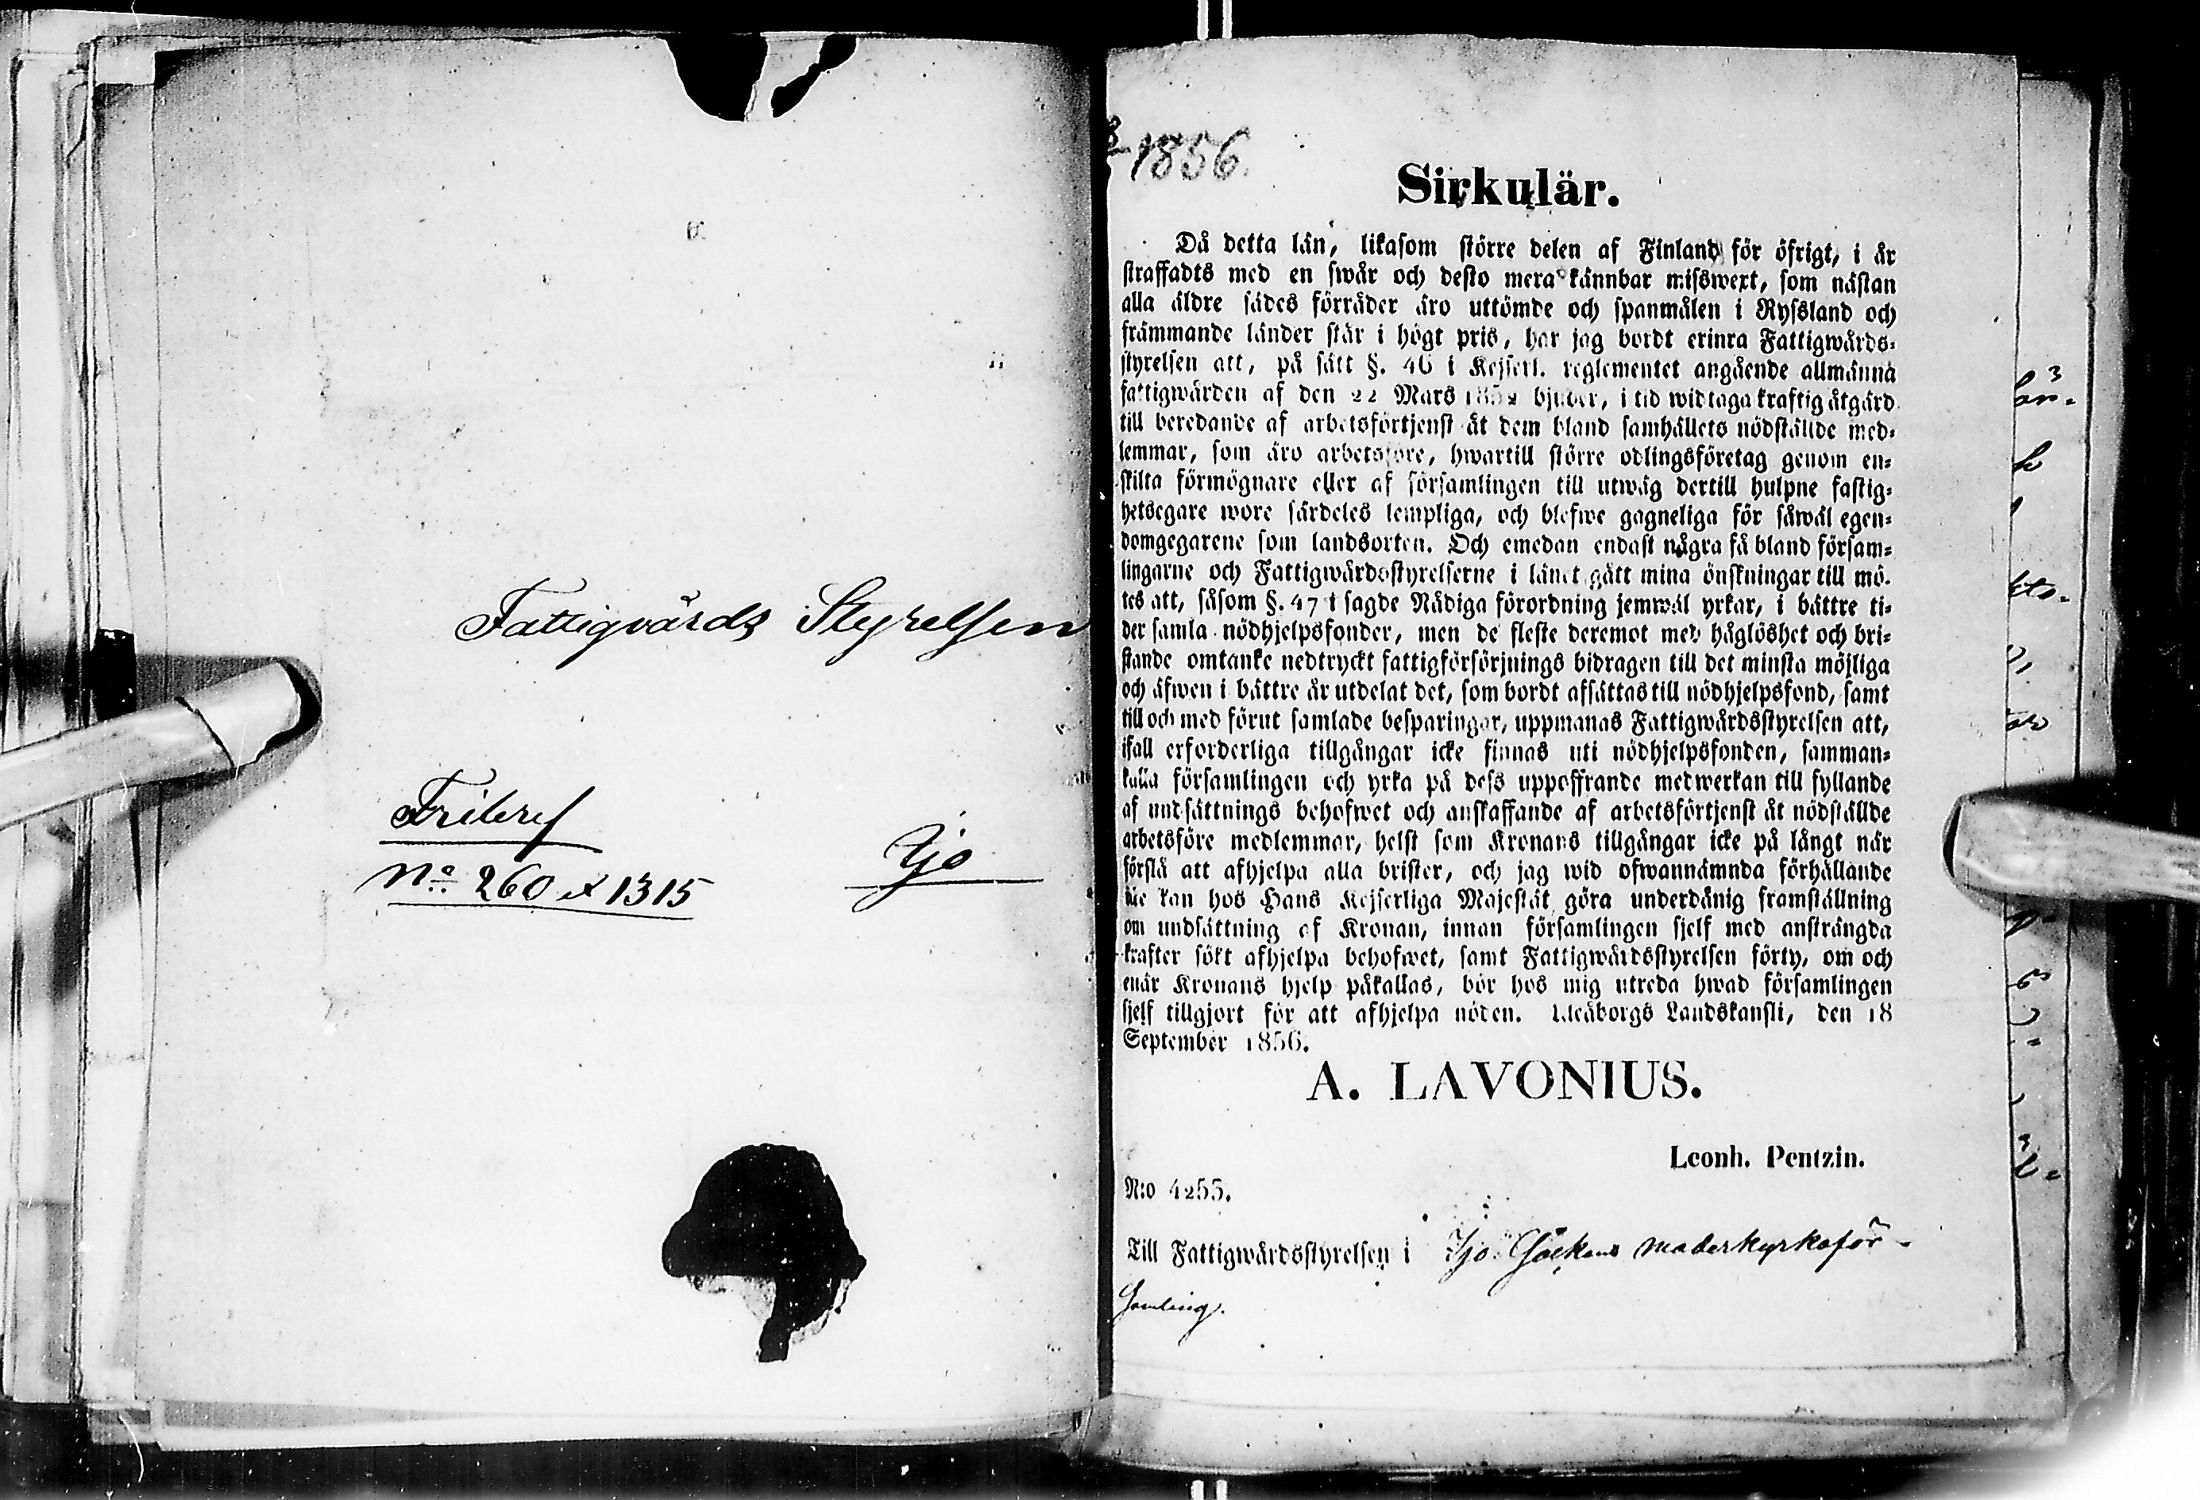 Fattigvårds Styrelsen
Fribref
No 260 et 1315
Ijo
1856.
Sirkulär.
Då detta län, likasom större delen af Finland för öfrigt, i år
straffadts med en swår och desto mera kännbar misswext, som nästan
alla äldre sädes förråder äro uttömde och spanmålen i Ryssland och
främmande länder står i högt pris, har jag bordt erinra Fattigwårds-
styrelsen att, på sätt §. 46 i Kejserl. reglementet angående allmänna
fattigwården af den 22 Mars 1852 bjuder, i tid widtaga kraftig åtgärd
till beredande af arbetsförtjenst åt dem bland samhällets nödstälde med-
lemmar, som äro arbetsföre, hwartill större odlingsföretag genom en-
skilta förmögnare eller af församlingen till utwäg dertill hulpne fastig-
hetsegare wore särdeles lempliga, och blefwe gagneliga för såwäl egen-
domgegarene som landsorten. Och emedan endast några få bland försam-
lingarne och Fattigwårdsstyrelserne i länet gått mina önskningar till mö-
tes att, såsom §. 47 i sagde Nådiga förordning jemwäl yrkar, i bättre ti-
der samla nödhjelpsfonder, men de fleste deremot med håglöshet och bri-
stande omtanke nedtryckt fattigförsörjnings bidragen till det minsta möjliga
och äfwen i bättre år utdelat det, som bordt afsättas till nödhjelpsfond, samt
till och med förut samlade besparingar, uppmanas Fattigwårdsstyrelsen att,
ifall erforderliga tillgångar icke finnas uti nödhjelpsfonden, samman-
kalla församlingen och yrka på dess uppoffrande medwerkan till fyllande
af undsättnings behofwet och anskaffande af arbetsförtjenst åt nödställde
arbetsföre medlemmar, helst som Kronans tillgångar icke på långt när
förslå att afhjelpa alla brister, och jag wid ofwannämnda förhållande
icke kan hos Hans Kejserliga Majestät göra underdånig framställning
om undsättning af Kronan, innan församlingen sjelf med ansträngda
krafter sökt afhjelpa behofwet, samt Fattigwårdsstyrelsen förty, om och
enär Kronans hjelp påkallas, bör hos mig utreda hwad församlingen
sjelf tillgjort för att afhjelpa nöden. Uleåborgs Landskansli, den 18
September 1856.
A. LAVONIUS.
Leonh. Pentzin.
N:o 4255.
Till Fattigwårdsstyrelsen i Ijo Sockens moderkyrkoför-
samling.